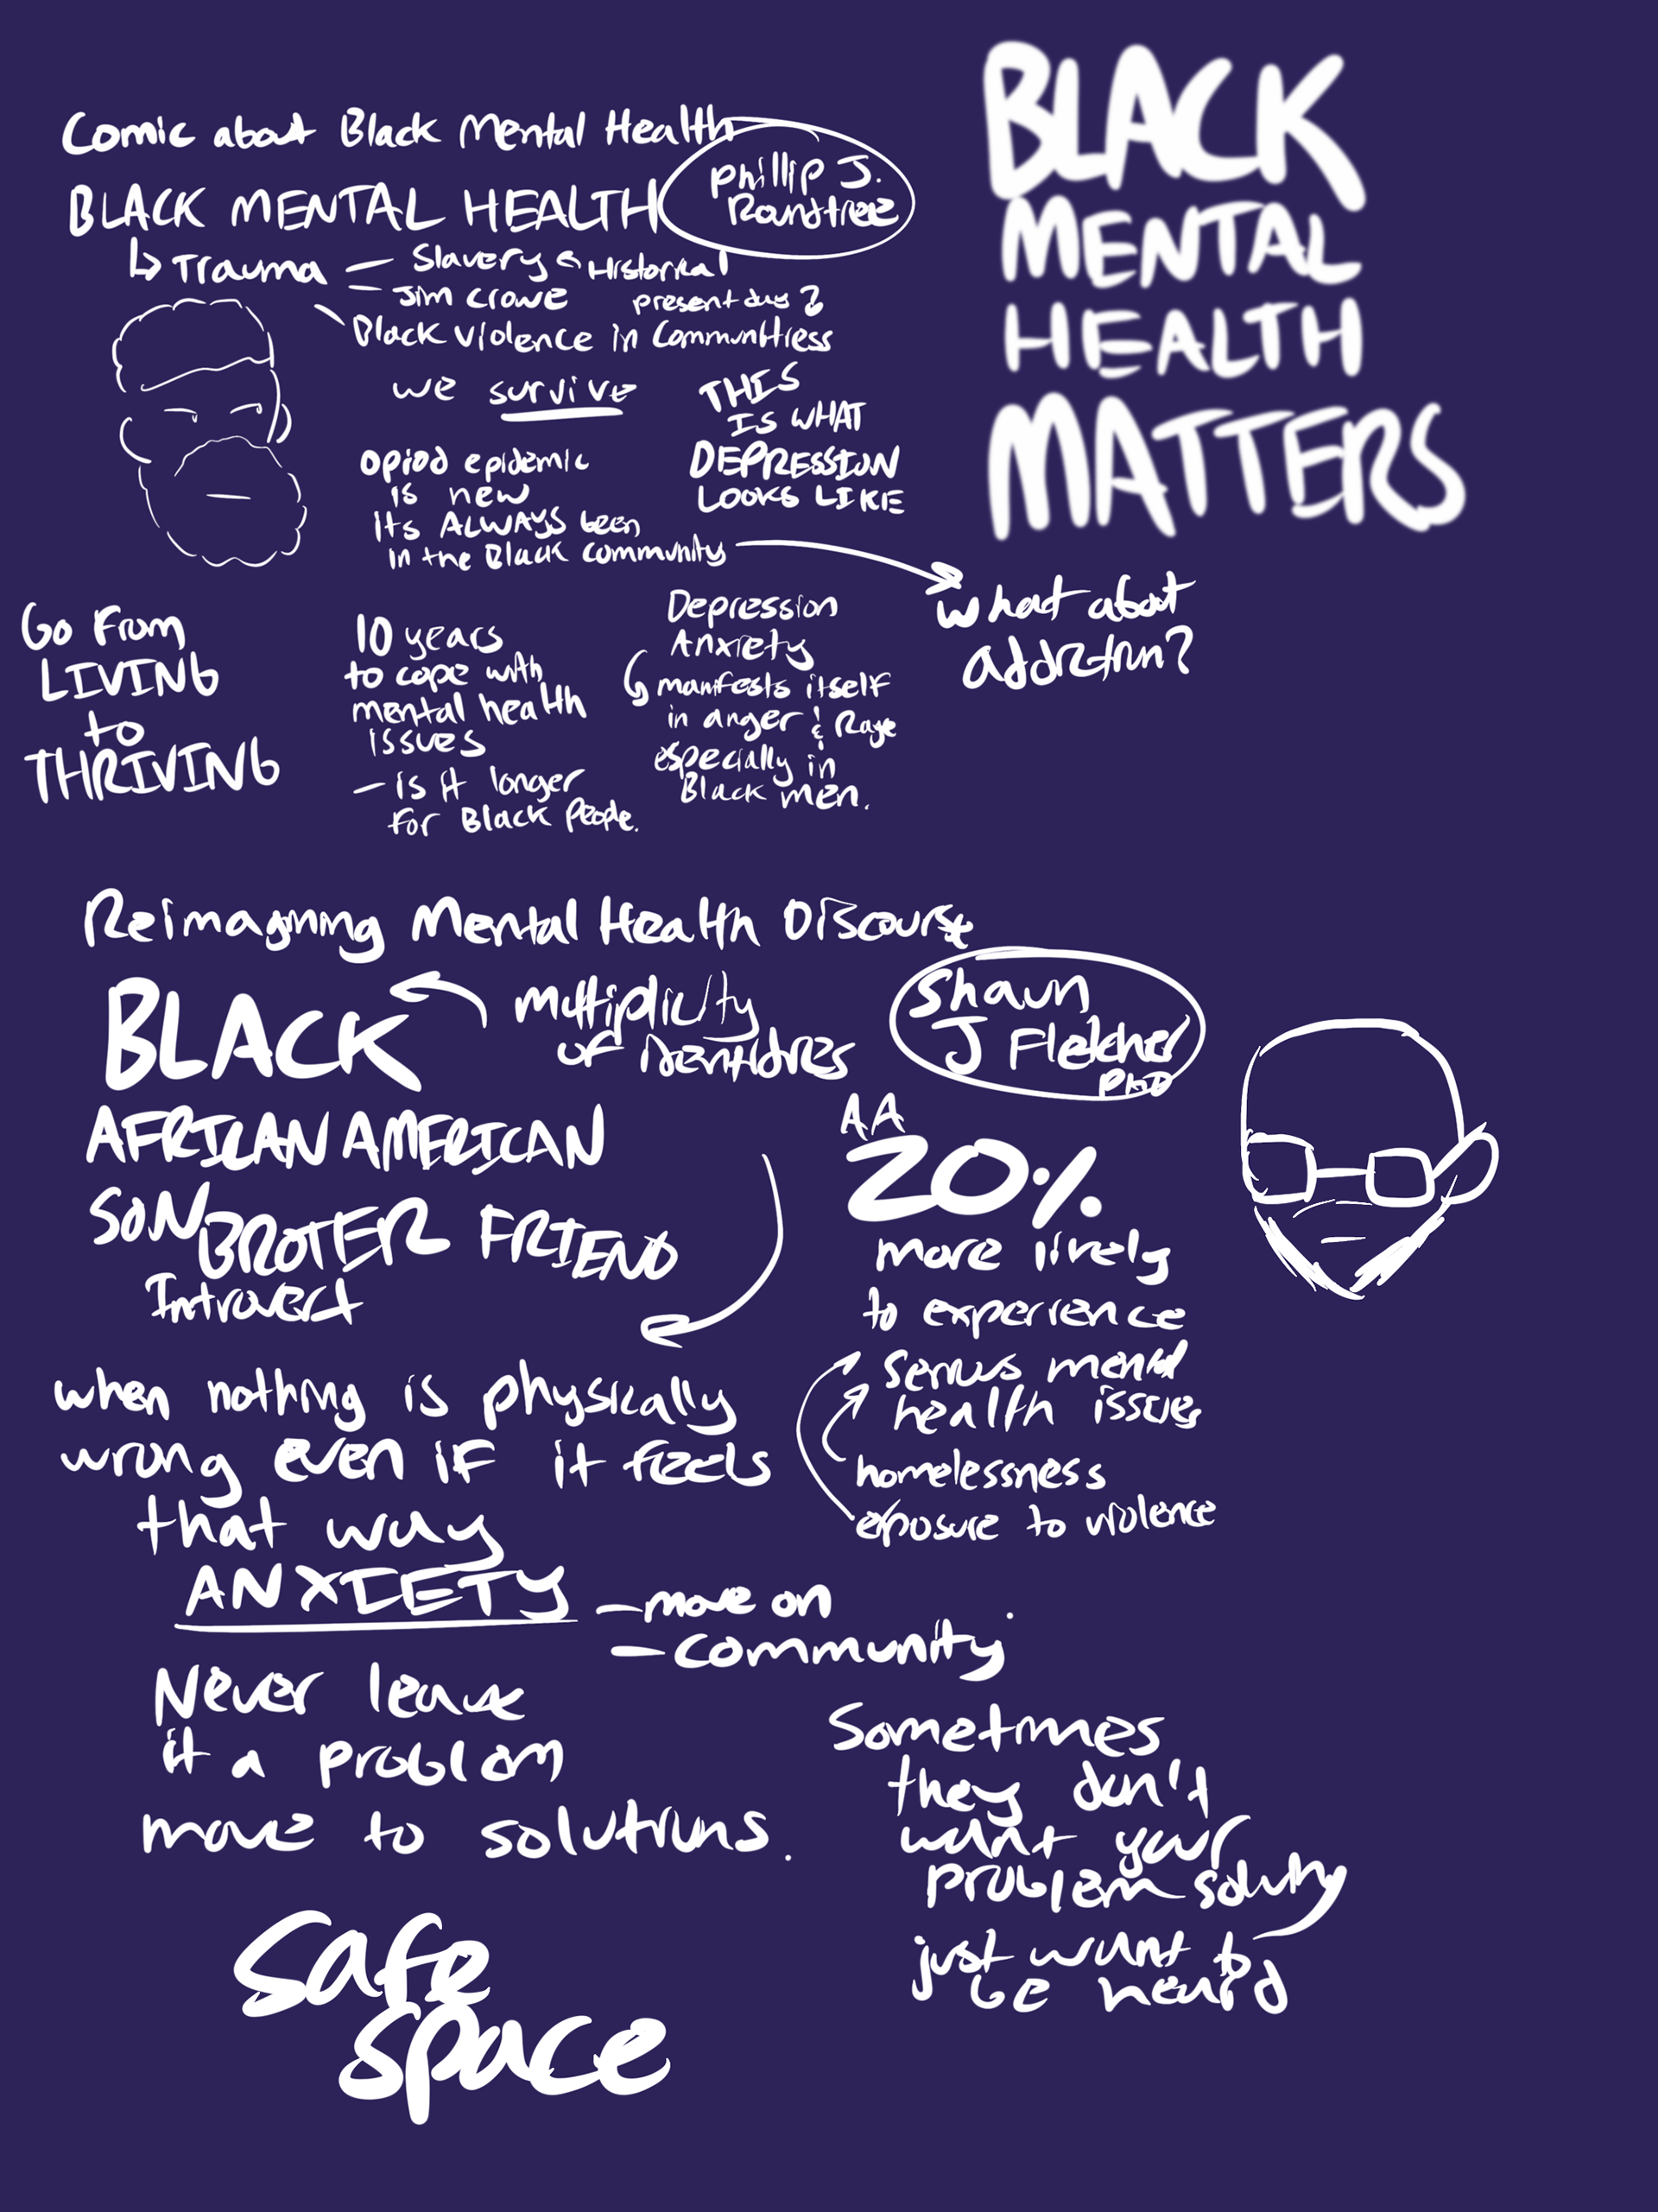 Comic about Black Mental Health
BLACK MENTAL HEALTH
Phillip J.
Roundtree
Trauma
— Slavery & Historical
— Jim Crowe present day?
Black violence in Communitiess
we survive
THIS
IS WHAT
DEPRESSION
LOOKS LIKE
opiod epidemic
is new
its ALWAYS been
in the Black community
what about
addiction?
BLACK
MENTAL
HEALTH
MATTERS
Go from
LIVING
to
THRIVING
10 years
to cope with
mental health
issues
— is it longer
for Black People.
Depression
Anxiety
manifests itself
in anger & Rage
especially in
Black men.
Reimagining Mental Health Discourse
BLACK
multiplicity
of identities
Shaun
J Fletcher
PhD
AFRICAN AMERICAN
SON BROTER FRIEND
Introvert
AA
20%
more likely
to experience
serious mental
health issues
homelessness
exposure to violence
when nothing is physically
wrong even if it feels
that way
ANXIETY
— move on
— community
Never leave
it a problem
move to solutions.
Sometimes
they don't
want your
problem solving
just want to
be heard
safe
space